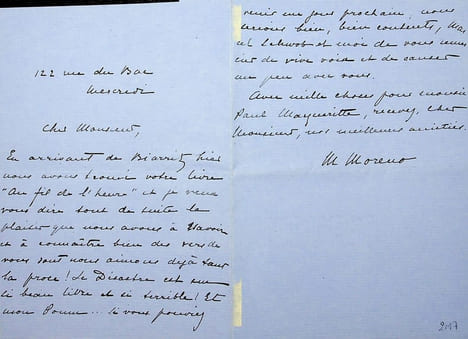 122 rue du Bac
Mercredi
Cher Monsieur,
En arrivant de Biarritz hier
nous avons trouvé votre livre
"Au fil de l'heure" et je veux
vous dire tout de suite le
plaisir que nous avons à l'avoir
et à connaître bien des vers de
vous dont nous aimons déjà tant
la prose! Le Désastre est un
si beau livre et si terrible! Et
mon Poum... si vous pouviez
venir un jour prochain, nous
serions bien, bien contents, Mar
cel Schwob et moi de vous remer
cier de vive voix et de causer
un peu avec vous.
Avec mille choses pour monsieur
Paul Margueritte, recevez, cher
Monsieur, nos meilleures amitiés.
M Moreno